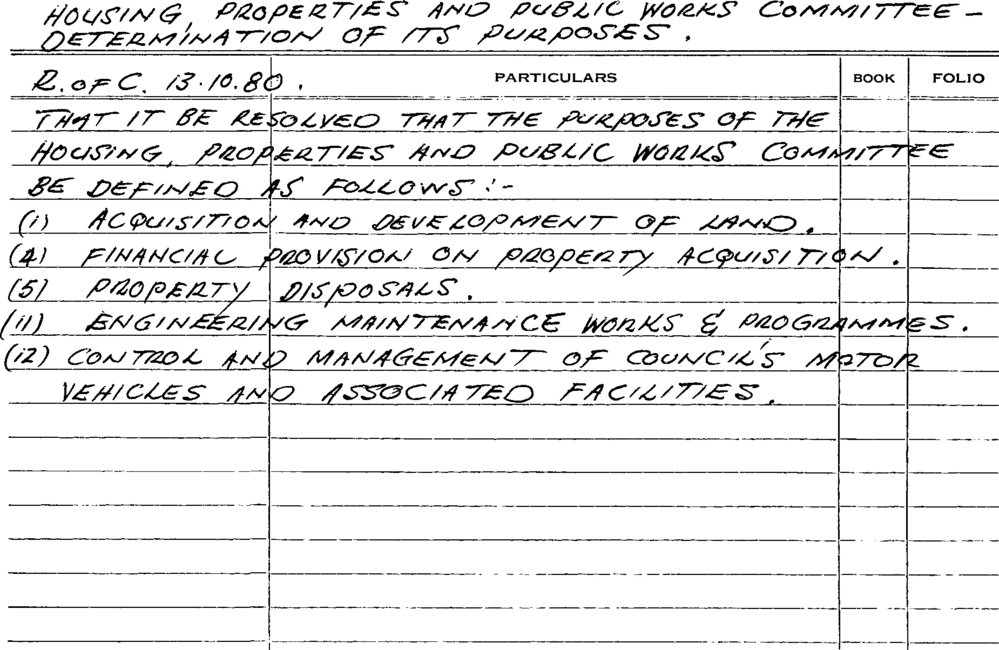 HOUSING, PROPERTIES AND PUBLIC WORKS COMMITTEE -
DETERMINATION OF ITS PURPOSES.
R. OF C. 13.10.80. PARTICULARS BOOK FOLIO
THAT IT BE RESOLVED THAT THE PURPOSES OF THE
HOUSING, PROPERTIES AND PUBLIC WORKS COMMITTEE
BE DEFINED AS FOLLOWS :-
(1) ACQUISITION AND DEVELOPMENT OF LAND.
(4) FINANCIAL PROVISION ON PROPERTY ACQUISITION.
(5) PROPERTY DISPOSALS.
(11) ENGINEERING MAINTENANCE WORKS & PROGRAMMES.
(12) CONTROL AND MANAGEMENT OF COUNCIL'S MOTOR
VEHICLES AND ASSOCIATED FACILITIES.